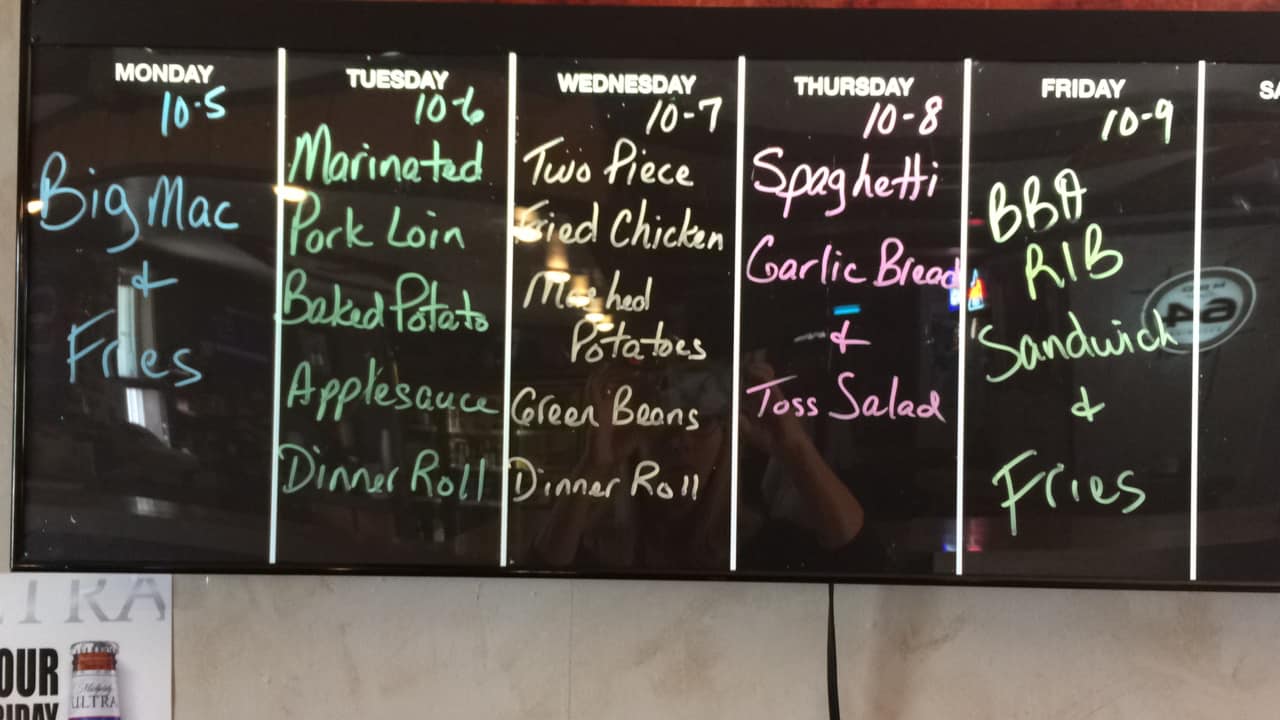 MONDAY
10-5
Big Mac
&
Fries
TUESDAY
10-6
Marinated
Pork Loin
Baked Potato
Applesauce
Dinner Roll
WEDNESDAY
10-7
Two Piece
Fried Chicken
Mashed
Potatoes
Green Beans
Dinner Roll
THURSDAY
10-8
Spaghetti
Garlic Bread
&
Toss Salad
FRIDAY
10-9
BBQ
RIB
Sandwich
&
Fries
SA
TRA
OUR
RIDAY
Michelob
ULTRA